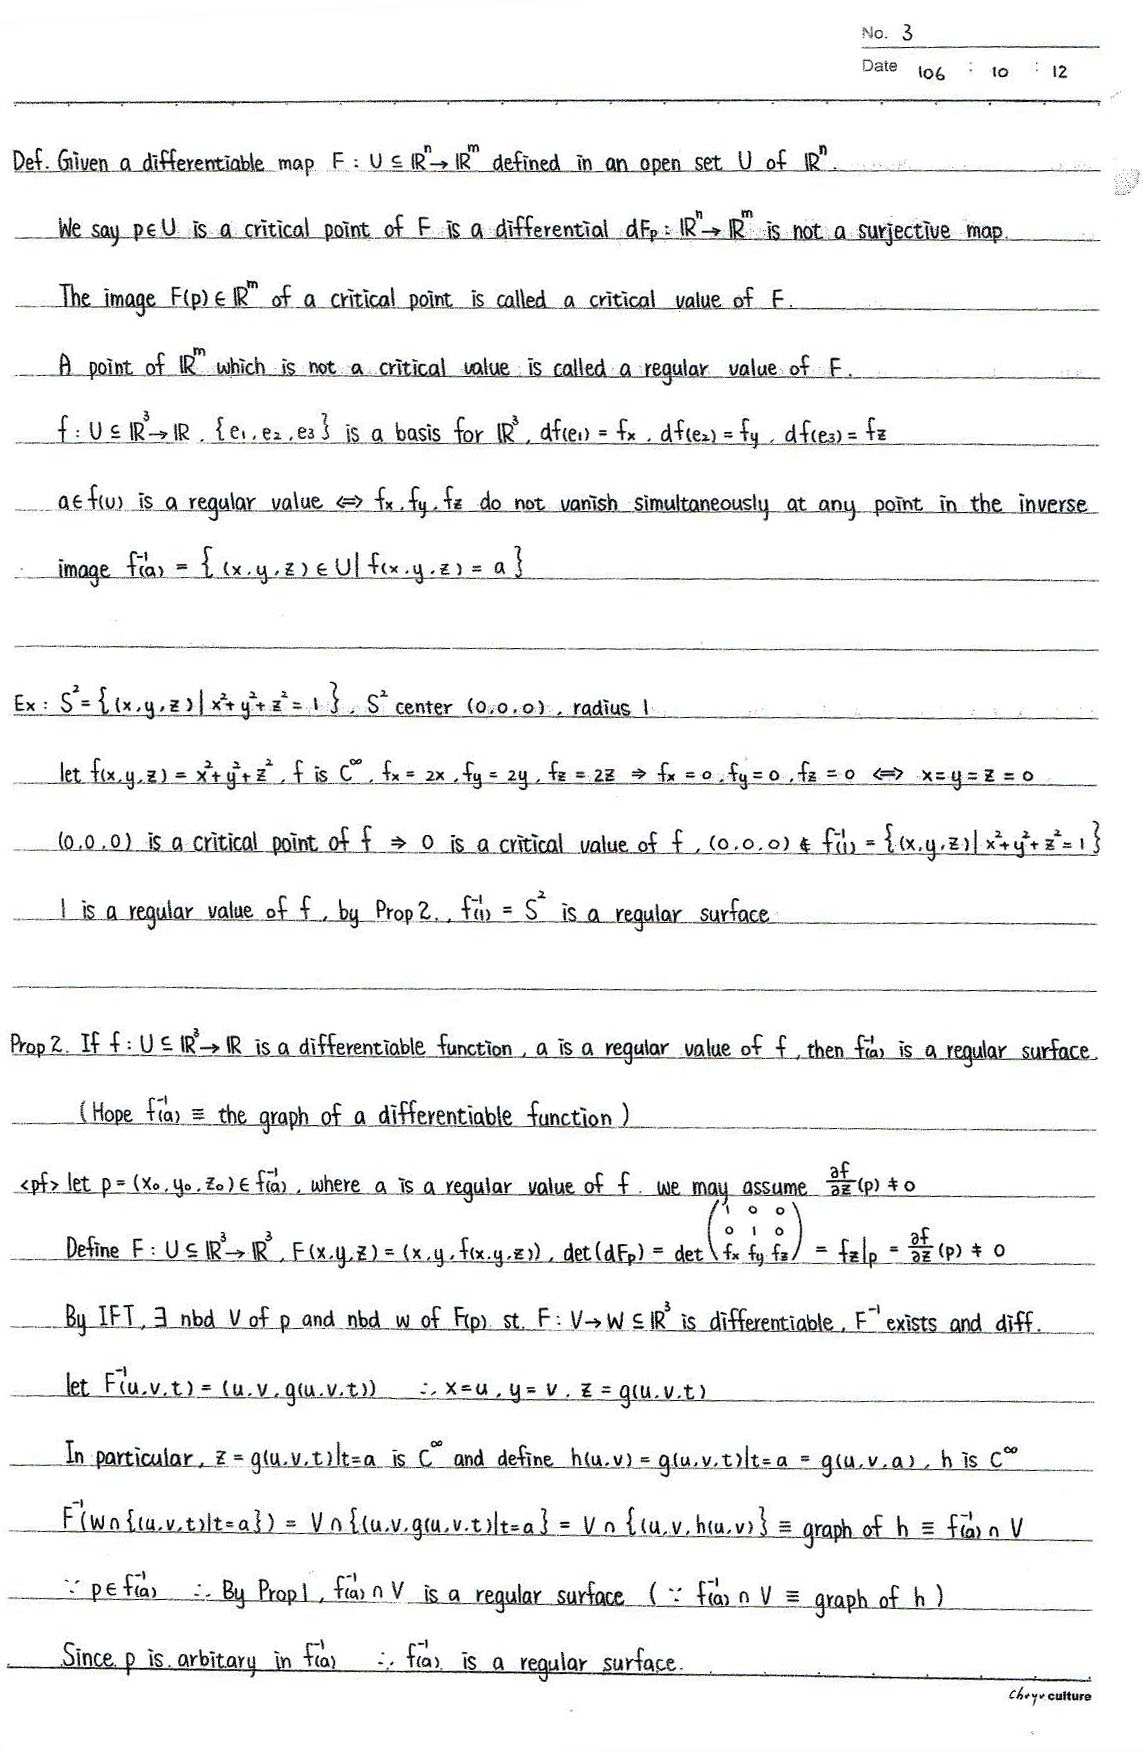 No. 3
Date 106 : 10 : 12
Def. Given a differentiable map F : U ⊆ ℝⁿ → ℝᵐ defined in an open set U of ℝⁿ.
We say p∈U is a critical point of F is a differential dFₚ : ℝⁿ → ℝᵐ is not a surjective map.
The image F(p) ∈ ℝᵐ of a critical point is called a critical value of F.
A point of ℝᵐ which is not a critical value is called a regular value of F.
f : U ⊆ ℝ³ → ℝ, {e₁, e₂, e₃} is a basis for ℝ³, df(e₁) = fx, df(e₂) = fy, df(e₃) = fz
a∈f(U) is a regular value ⇔ fx, fy, fz do not vanish simultaneously at any point in the inverse
image f⁻¹(a) = {(x,y,z) ∈ U | f(x,y,z) = a}
Ex : S² = {(x,y,z) | x²+y²+z² = 1}, S² center (0,0,0), radius 1
let f(x,y,z) = x²+y²+z², f is C^∞, fx = 2x, fy = 2y, fz = 2z ⇒ fx = 0, fy = 0, fz = 0 ⇔ x=y=z=0
(0,0,0) is a critical point of f ⇒ 0 is a critical value of f, (0,0,0) ∉ f⁻¹(1) = {(x,y,z) | x²+y²+z² = 1}
1 is a regular value of f, by Prop 2., f⁻¹(1) = S² is a regular surface
Prop 2. If f : U ⊆ ℝ³ → ℝ is a differentiable function, a is a regular value of f, then f⁻¹(a) is a regular surface.
(Hope f⁻¹(a) ≡ the graph of a differentiable function)
<pf> let p = (x₀, y₀, z₀) ∈ f⁻¹(a), where a is a regular value of f. we may assume ∂f/∂z (p) ≠ 0
Define F : U ⊆ ℝ³ → ℝ³, F(x,y,z) = (x, y, f(x,y,z)), det(dFₚ) = det (1 0 0 / 0 1 0 / fx fy fz) = fz|p = ∂f/∂z (p) ≠ 0
By IFT, ∃ nbd V of p and nbd w of F(p) st. F : V → W ⊆ ℝ³ is differentiable, F⁻¹ exists and diff.
let F⁻¹(u,v,t) = (u, v, g(u,v,t)) ∴ x=u, y = v, z = g(u,v,t)
In particular, z = g(u,v,t)|t=a is C^∞ and define h(u,v) = g(u,v,t)|t=a = g(u,v,a), h is C^∞
F⁻¹(W∩{(u,v,t)|t=a}) = V∩{(u,v,g(u,v,t)|t=a} = V∩{(u,v,h(u,v)} ≡ graph of h ≡ f⁻¹(a)∩V
∵ p∈f⁻¹(a) ∴ By Prop1, f⁻¹(a)∩V is a regular surface (∵ f⁻¹(a)∩V ≡ graph of h)
Since p is arbitary in f⁻¹(a) ∴ f⁻¹(a) is a regular surface.
culture